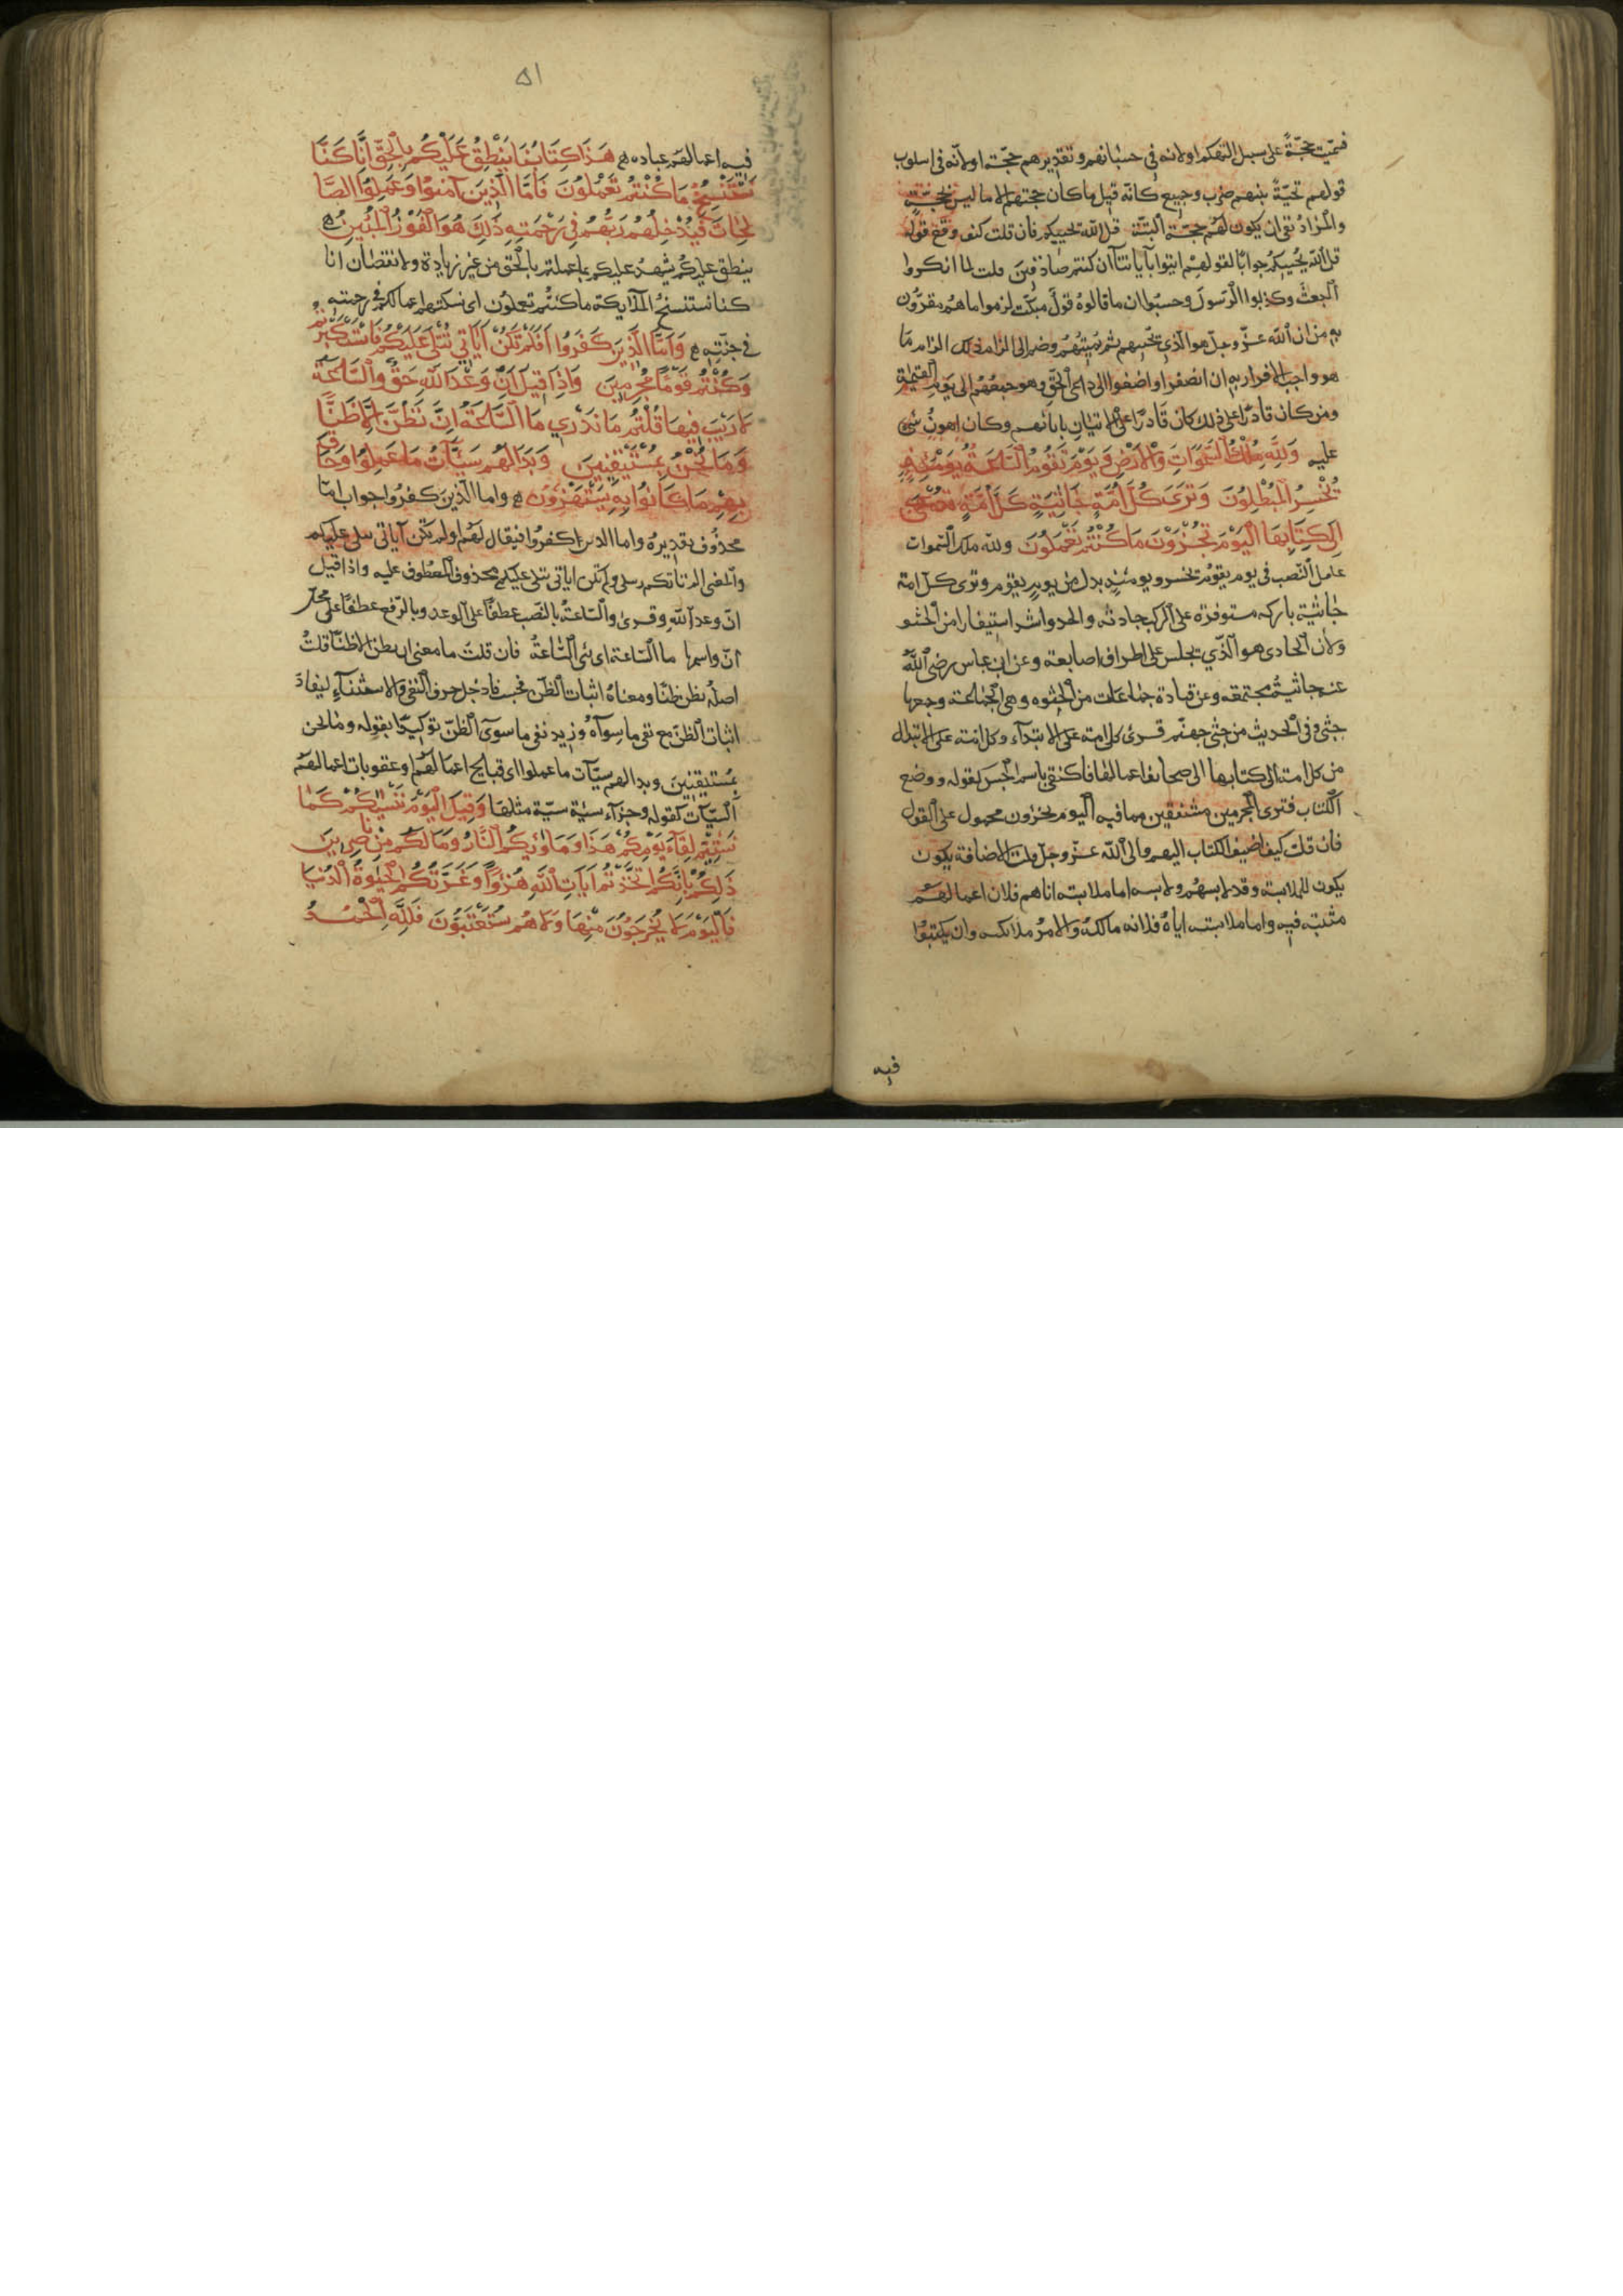 فسميت حجّة على سبيل التهكم اولانه في حسبانهم وتقديرهم حجّة اولانه في اسلوب
قولهم تحيّة بينهم ضرب وجيع كانه قيل ما كان حجتهم الا ما ليس بحجّة
والمراد نفي ان يكون لهم حجّة البتّة قل الله يحييكم فان قلت كيف وقع قوله
قل الله يحييكم جوابا لقولهم ايتوا بآبائنا ان كنتم صادقين قلت لما انكروا
البعث وكذبوا الرسول وحسبوا ان ما قالوه قول مبكت لزموا ما هم مقرّون
به من ان الله عزّ وجلّ هو الذي يحييهم ثم يميتهم وضم الى الزام ذلك الزام ما
هو واجب الاقرار به ان انصفوا واصغوا الى داعي الحق وهو جمعهم الى يوم القيمة
ومن كان قادرا على ذلك كان قادرا على الاتيان بابائهم وكان اهون شي
عليه وَلِلَّهِ مُلْكُ السَّمَوَاتِ وَالْأَرْضِ وَيَوْمَ تَقُومُ السَّاعَةُ يَوْمَئِذٍ
يَخْسَرُ الْمُبْطِلُونَ وَتَرَى كُلَّ أُمَّةٍ جَاثِيَةً كُلُّ أُمَّةٍ تُدْعَى
إِلَى كِتَابِهَا الْيَوْمَ تُجْزَوْنَ مَا كُنْتُمْ تَعْمَلُونَ ولله ملك السموات
عامل النصب في يوم يقوم يخسر ويومئذ بدل من يوم يقوم وترى كل امة
جاثية باركه مستوفزة على الركب جاذية والجذو اشد استيفازا من الجثو
ولان الجاذي هو الذي يجلس على اطراف اصابعه وعن ابن عباس رضي الله
عنه جاثية مجتمعه وعن قتادة جماعات من الجثوه وهي الجماعة وجمعها
جثى وفي الحديث من جثى جهنم قرئ كل امة على الابتداء وكل امة على الابدال
من كل امة الى كتابها الى صحائف اعمالها فاكتفى باسم الجنس لقوله ووضع
الكتاب فترى المجرمين مشفقين مما فيه اليوم تجزون محمول على القول
فان قلت كيف اضيف الكتاب اليهم والى الله عز وجل قلت الاضافة يكون
يكون للملابسة وقد لابسهم ولابسه اما ملابسته اياهم فلان اعمالهم
مثبتة فيه واما ملابسته اياه فلانه مالكه والامر ملائكته وان يكتبوا
فيه
٥١
فيه اعمالهم عباده هَذَا كِتَابُنَا يَنْطِقُ عَلَيْكُمْ بِالْحَقِّ إِنَّا كُنَّا
نَسْتَنْسِخُ مَا كُنْتُمْ تَعْمَلُونَ فَأَمَّا الَّذِينَ آمَنُوا وَعَمِلُوا الصَّا
لِحَاتِ فَيُدْخِلُهُمْ رَبُّهُمْ فِي رَحْمَتِهِ ذَلِكَ هُوَ الْفَوْزُ الْمُبِينُ
ينطق عليكم يشهد عليكم بما عملتم بالحق من غير زيادة ولا نقصان انا
كنا نستنسخ الملايكة ما كنتم تعملون اي نسكتبهم اعمالكم في رحمته
في جنّته وَأَمَّا الَّذِينَ كَفَرُوا أَفَلَمْ تَكُنْ آيَاتِي تُتْلَى عَلَيْكُمْ فَاسْتَكْبَرْتُمْ
وَكُنْتُمْ قَوْمًا مُجْرِمِينَ وَإِذَا قِيلَ إِنَّ وَعْدَ اللَّهِ حَقٌّ وَالسَّاعَةُ
لَا رَيْبَ فِيهَا قُلْتُمْ مَا نَدْرِي مَا السَّاعَةُ إِنْ نَظُنُّ إِلَّا ظَنًّا
وَمَا نَحْنُ بِمُسْتَيْقِنِينَ وَبَدَا لَهُمْ سَيِّئَاتُ مَا عَمِلُوا وَحَاقَ
بِهِمْ مَا كَانُوا بِهِ يَسْتَهْزِؤُنَ واما الذين كفروا جواب امّا
محذوف تقديره واما الذين كفروا فيقال لهم اولم تكن آياتي تتلى عليكم
والمعنى الم تاتكم رسلي فلم تكن اياتي تتلى عليكم محذوف المعطوف عليه واذا قيل
ان وعد الله وقرئ والساعة بالنصب عطفا على الوعد وبالرفع عطفا على محل
انّ واسمها ما الساعة اي شئ الساعة فان قلت ما معنى ان نظن الا ظنّا قلت
اصله نظن ظنّا ومعناه اثبات الظن فحسب فادخل حرف النفي والاستثناء ليفاد
اثبات الظنّ مع نفي ما سواه وزيد نفي ما سوى الظنّ توكيدا بقوله وما نحن
بمستيقنين وبدا لهم سيّآت ما عملوا اي قبايح اعمالهم او عقوبات اعمالهم
السيّآت كقوله وجزآء سيّئة سيّئة مثلها وَقِيلَ الْيَوْمَ نَنْسٰيكُمْ كَمَا
نَسِيتُمْ لِقَاءَ يَوْمِكُمْ هَذَا وَمَاْوٰيكُمُ النَّارُ وَمَا لَكُمْ مِنْ نَاصِرِينَ
ذَلِكُمْ بِأَنَّكُمُ اتَّخَذْتُمْ آيَاتِ اللَّهِ هُزُوًا وَغَرَّتْكُمُ الْحَيٰوةُ الدُّنْيَا
فَالْيَوْمَ لَا يُخْرَجُونَ مِنْهَا وَلَا هُمْ يُسْتَعْتَبُونَ فَلِلَّهِ الْحَمْدُ